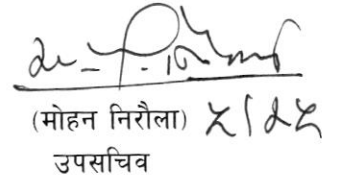 (मोहन निरौला) ५।२५
उपसचिव